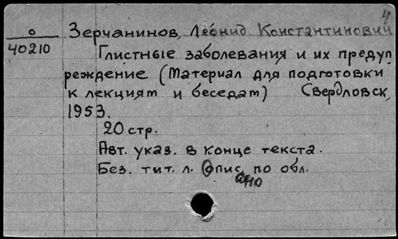 4
о
40210
Зерчанинов, Леонид Константинович
Глистные заболевания и их предуп
реждение (Материал для подготовки
к лекциям и беседам) Свердловск,
1953.
20 стр.
Авт. указ. в конце текста.
Без. тит. л. Опис. по обл.